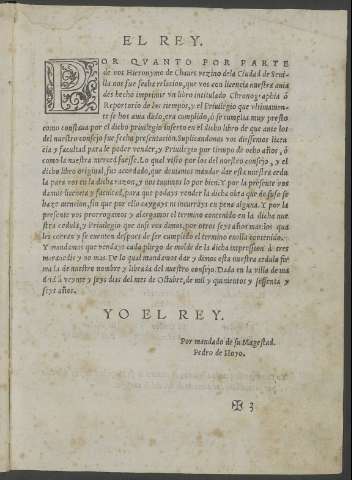 EL REY.
POR QVANTO POR PARTE
de vos Hieronymo de Chaues vezino dela Ciudad de Seui-
lla nos fue fecha relacion, que vos con licencia nuestra auia
des hecho imprimir vn libro intitulado Chronographia ó
Reportorio de los tiempos, y el Priuilegio que vltimamen-
te se hos auia dado, era cumplido, ó se cumplia muy presto
como constaua por el dicho priuilegio inserto en el dicho libro de que ante los
del nuestro consejo fue fecha presentacion. Suplicandonos vos diessemos licen
cia y facultad para le poder vender, y Priuilegio por tiempo de ocho años, ó
como la nuestra merced fuesse. Lo qual visto por los del nuestro consejo, y el
dicho libro original, fue acordado, que deuiamos mandar dar esta nuestra cedu
la para vos en la dicha razon, y nos tuuimos lo por bien. Y por la presente vos
damos licencia y facultad, para que podays vender la dicha obra que de suso se
haze mencion, sin que por ello caygays ni incurrays en pena alguna. Y por la
presente vos prorrogamos y alargamos el termino contenido en la dicha nue
stra cedula, y Priuilegio que ansi vos dimos, por otros seys años mas: los qua
les corran y se cuenten despues de ser cumplido el termino enella contenido.
Y mandamos que vendays cada pliego de molde de la dicha impression à tres
marauedis y no mas. De lo qual mandamos dar y dimos esta nuestra cedula fir
mada de nuestro nombre y librada del nuestro consejo. Dada en la villa de ma
drid à veynte y seys dias del mes de Octubre, de mil y quinientos y sessenta y
seys años.
YO EL REY.
Por mandado de su Magestad.
Pedro de Hoyo.
✠ 3